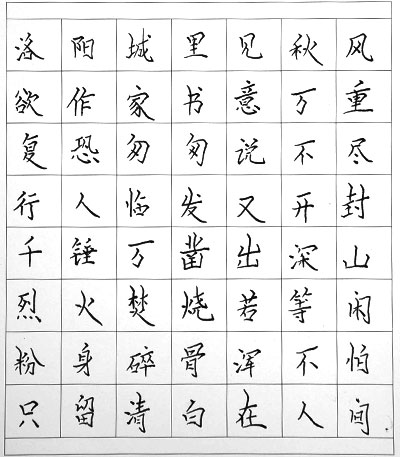 洛阳城里见秋风
欲作家书意万重
复恐匆匆说不尽
行人临发又开封
千锤万凿出深山
烈火焚烧若等闲
粉身碎骨浑不怕
只留清白在人间